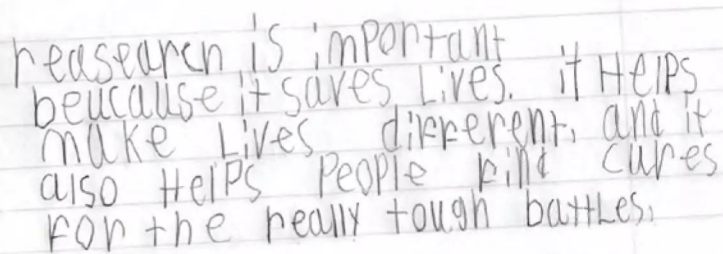 reasearch is important
beucause it saves Lives. it HeIPs
make Lives different, and it
also HelPs PeoPle find cures
For the really tough battLes.